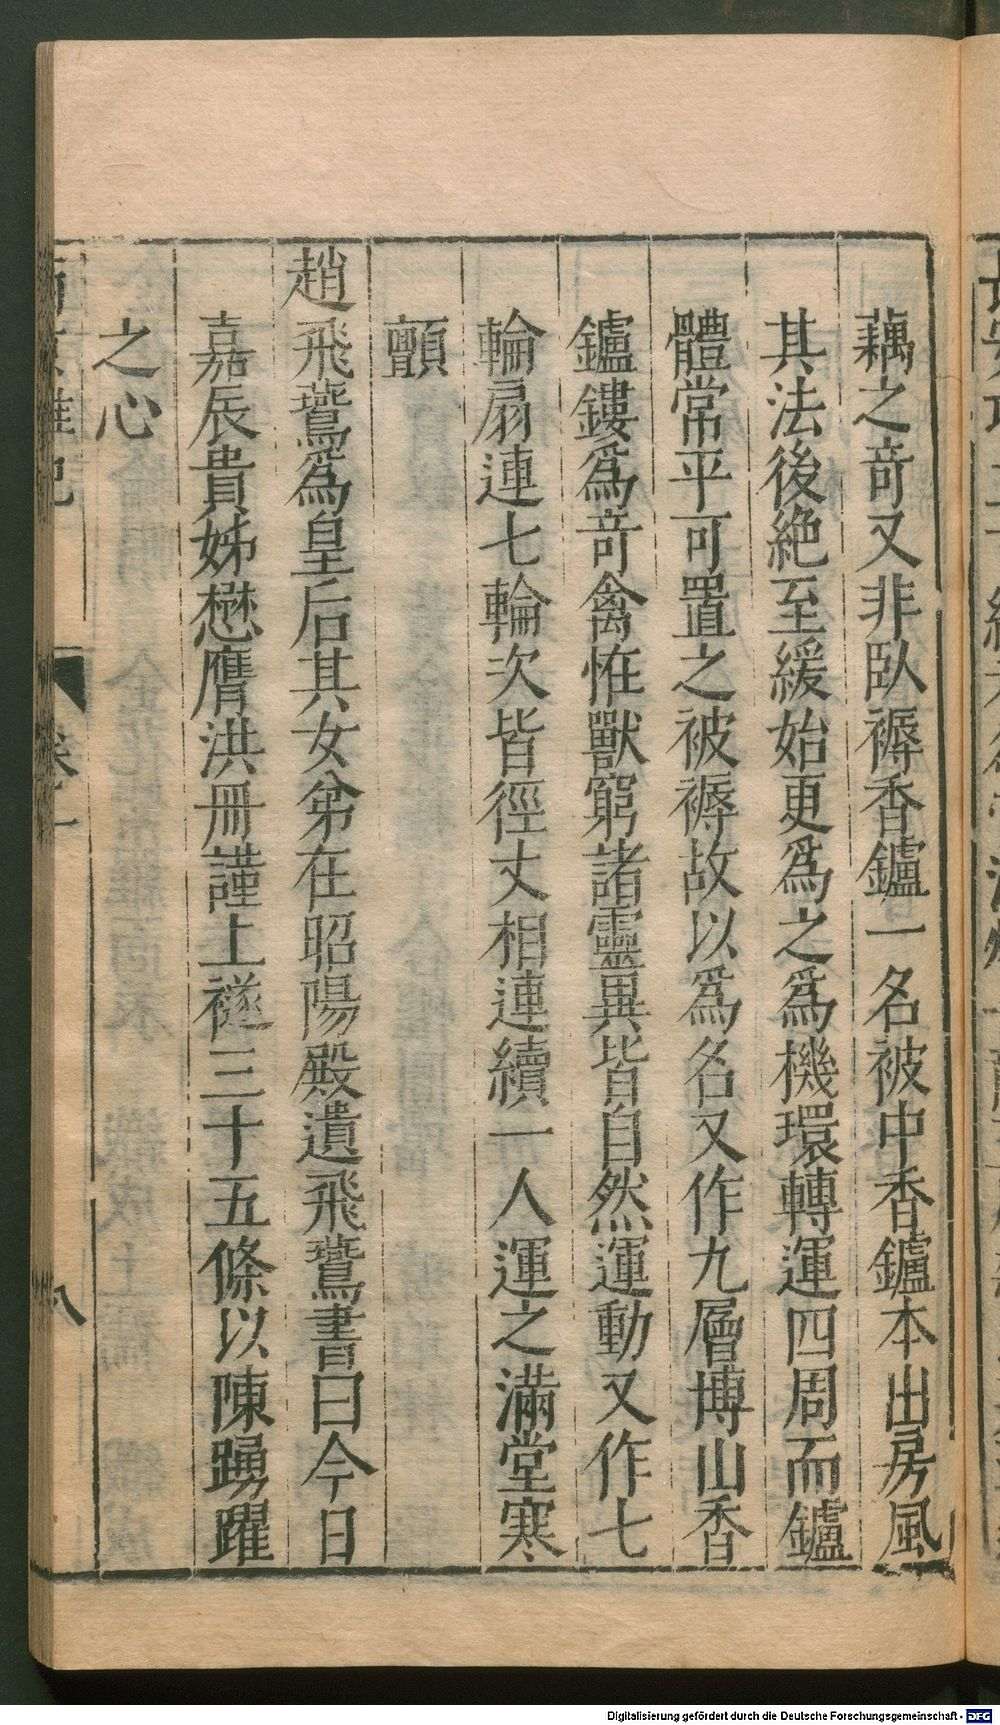 藕之竒又非臥褥香鑪一名被中香鑪本出房風
其法後絶至緩始更爲之爲機環轉運四周而鑪
體常平可置之被褥故以爲名又作九層博山香
鑪鏤爲竒禽恠獸窮諸靈異皆自然運動又作七
輪扇連七輪次皆徑丈相連續一人運之滿堂寒
顫
趙飛鷰爲皇后其女弟在昭陽殿遺飛鷰書曰今日
嘉辰貴姊懋膺洪冊謹上襚三十五條以陳踴躍
之心
卷一
八
Digitalisierung gefördert durch die Deutsche Forschungsgemeinschaft - DFG